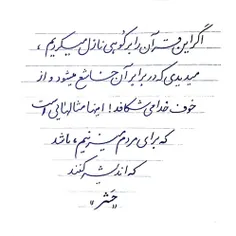 اگر این قرآن را بر کوهی نازل میکردیم ،
میدیدی که در برابر آن خاشع میشود و از
خوف خدا می شکافد! اینها مثالهایی است
که برای مردم میزنیم، باشد
که اندیشه کنند
"حشر"